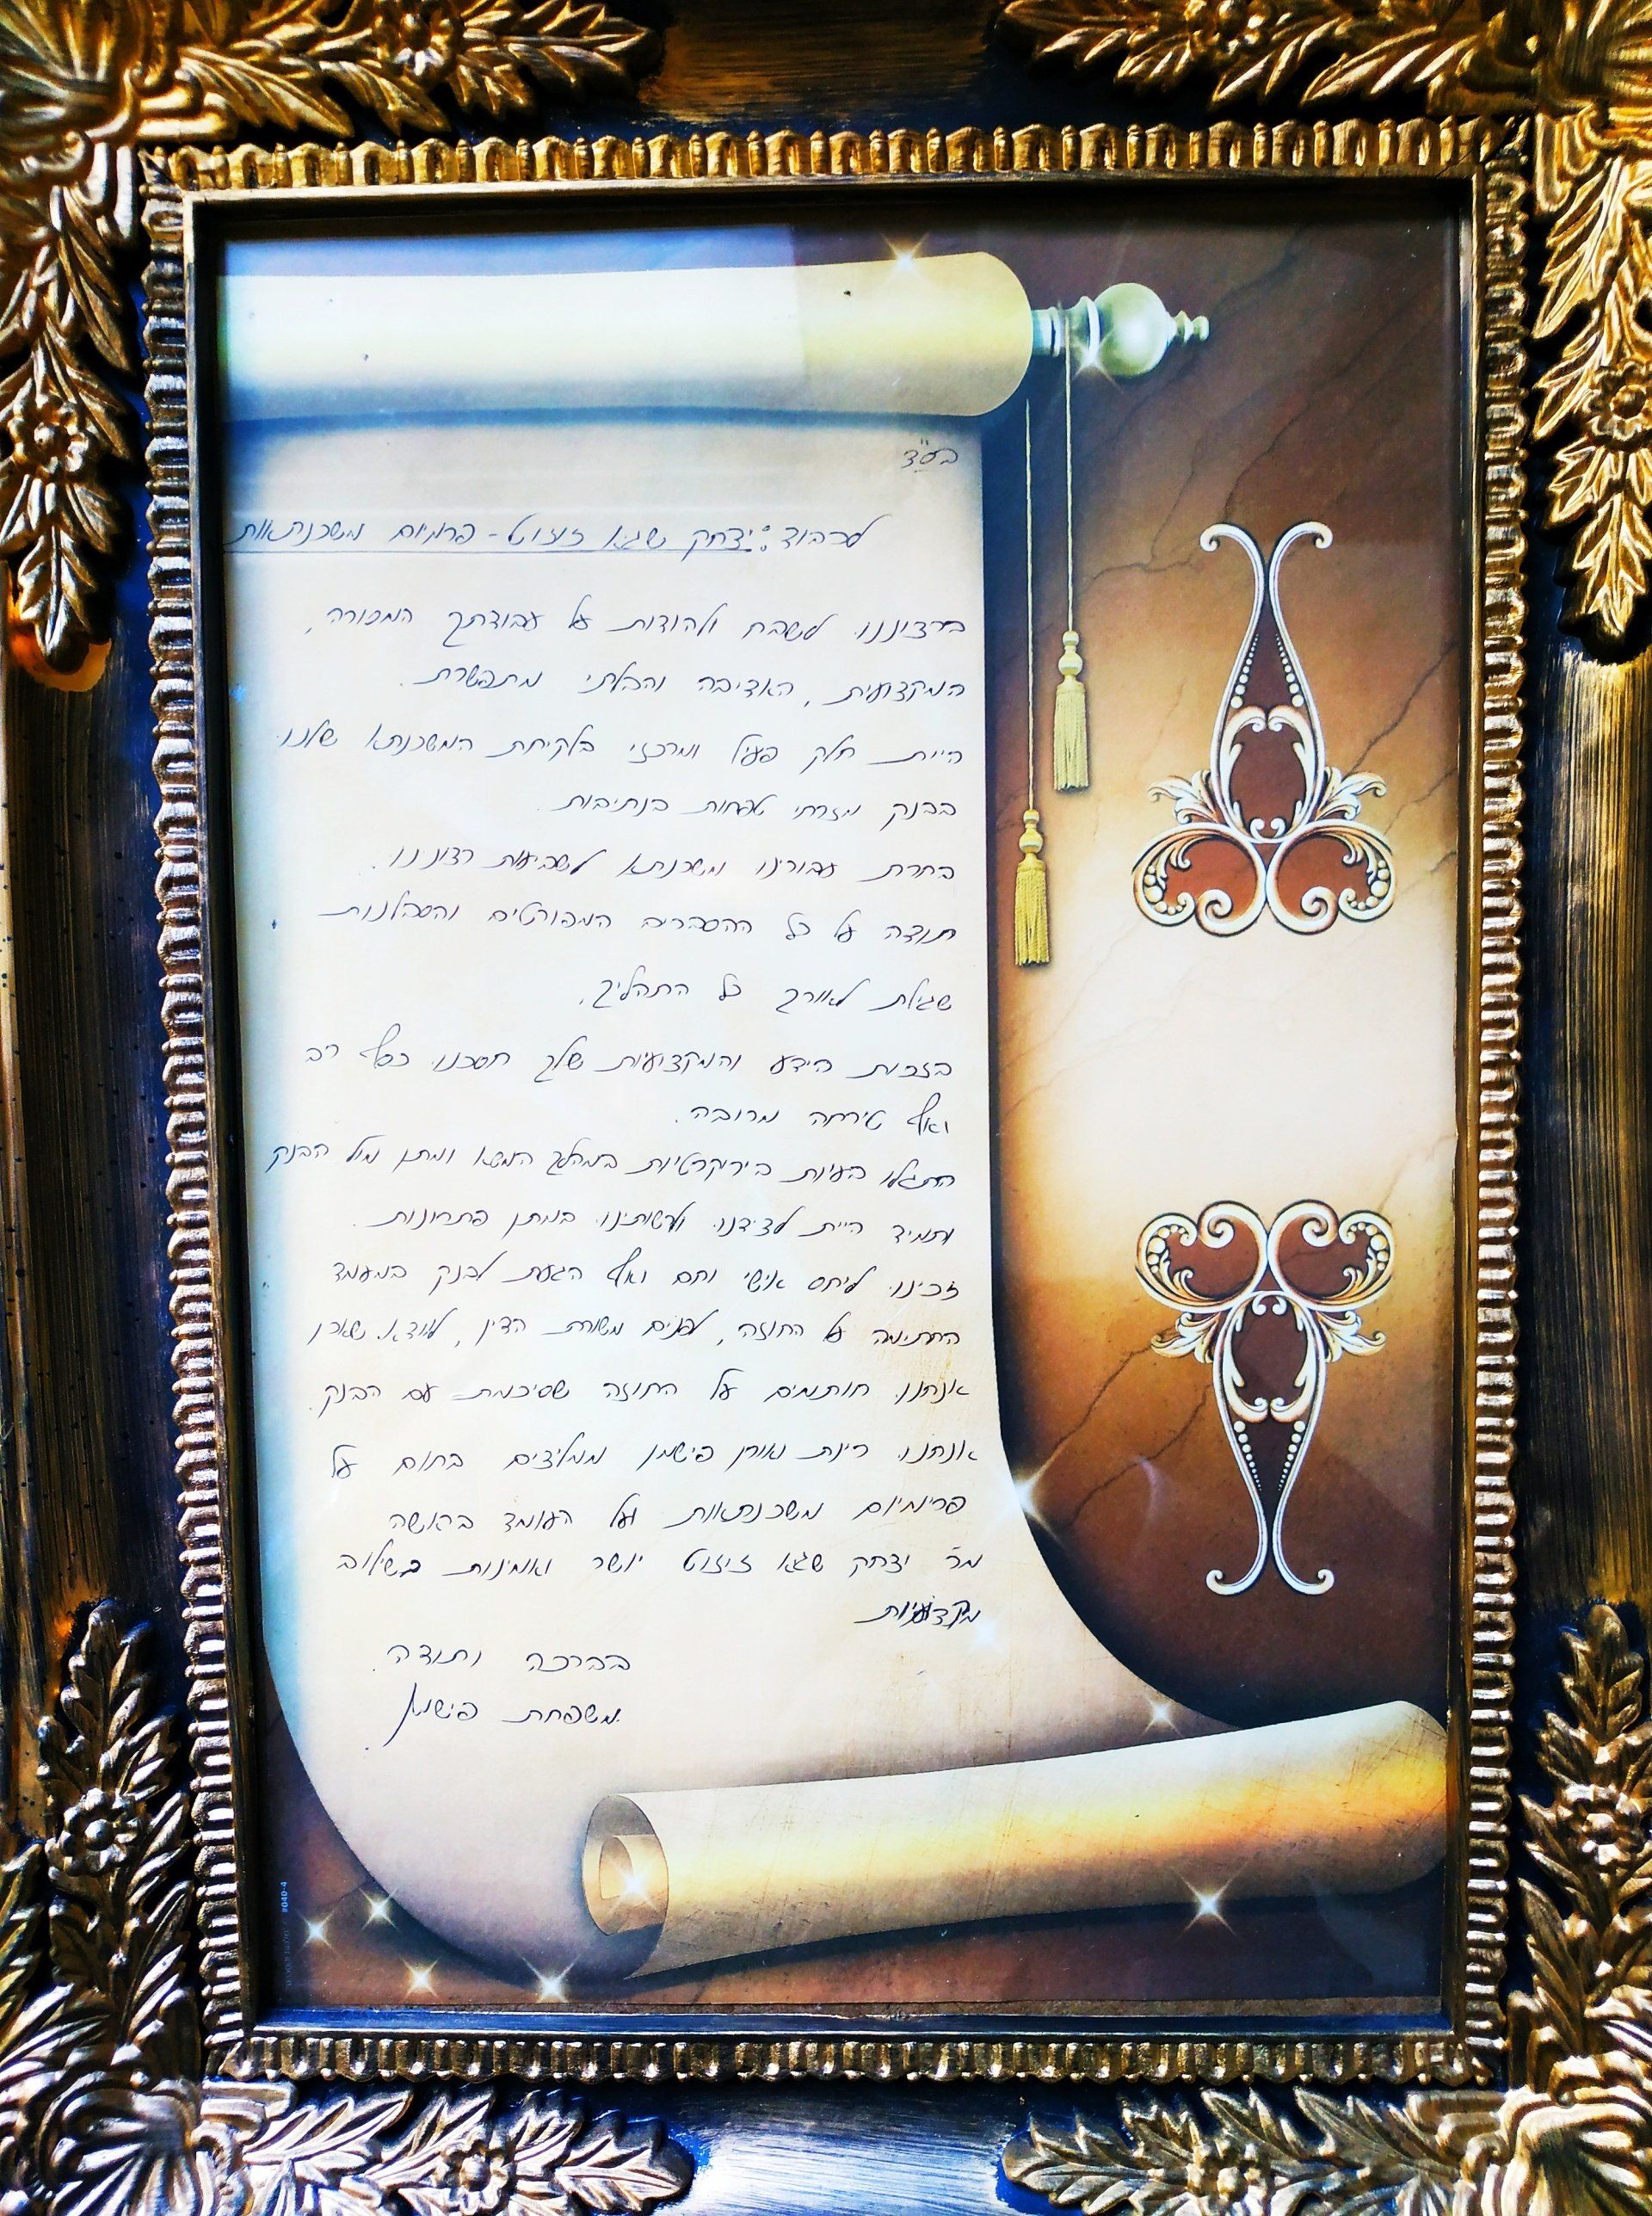 בס"ד
לכבוד: יצחק שגא זיזוט - פרמיום משכנתאות
ברצוננו לשבח ולהודות על עבודתך המסורה,
המקצועית, האדיבה והבלתי מתפשרת.
היית חלק פעיל ומרכזי בלקיחת המשכנתא שלנו
בבנק מזרחי טפחות בנתיבות.
בחרת עבורינו משכנתא לשביעות רצונינו.
תודה על כל ההסברים המפורטים והסבלנות
שגילת לאורך כל התהליך.
בזכות הידע והמקצועיות שלך חסכנו כסף רב
ואף טירחה מרובה.
התגלו בעיות בירוקרטיות במהלך המשא ומתן מול הבנק
ותמיד היית לצידנו ולרשותינו במתן פתרונות.
זכינו ליחס אישי וחם ואף הגעת לבנק במעמד
החתימה על החוזה, לפנים משורת הדין, לוודא שאכן
אנחנו חותמים על החוזה שסיכמת עם הבנק.
אנחנו רינת ואורן פישמן ממליצים בחום על
פרימיום משכנתאות ועל העומד בראשה
מר יצחק שגא זיזוט יושר ואמינות בשילוב
מקצועיות
בברכה ותודה.
משפחת פישמן.
#040-4